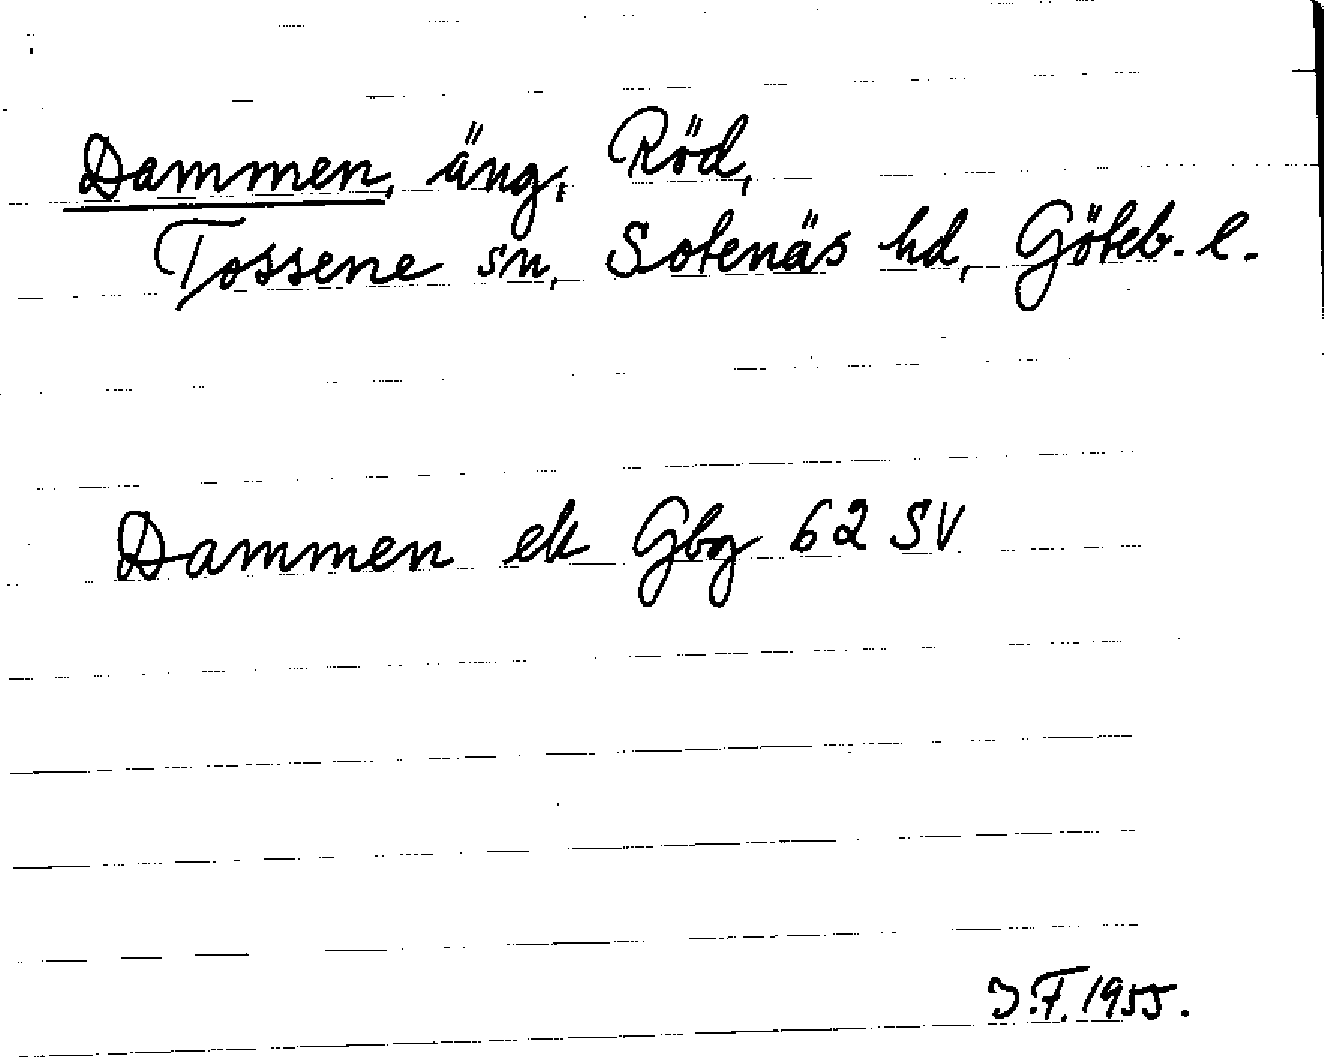 Dammen, äng, Röd,
Tossene sn, Sotenäs hd, Göteb. l.
Dammen ek Gbg 62 SV
J.F. 1955.